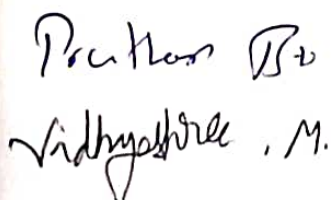 Prathan B
Vidhyashree . M.